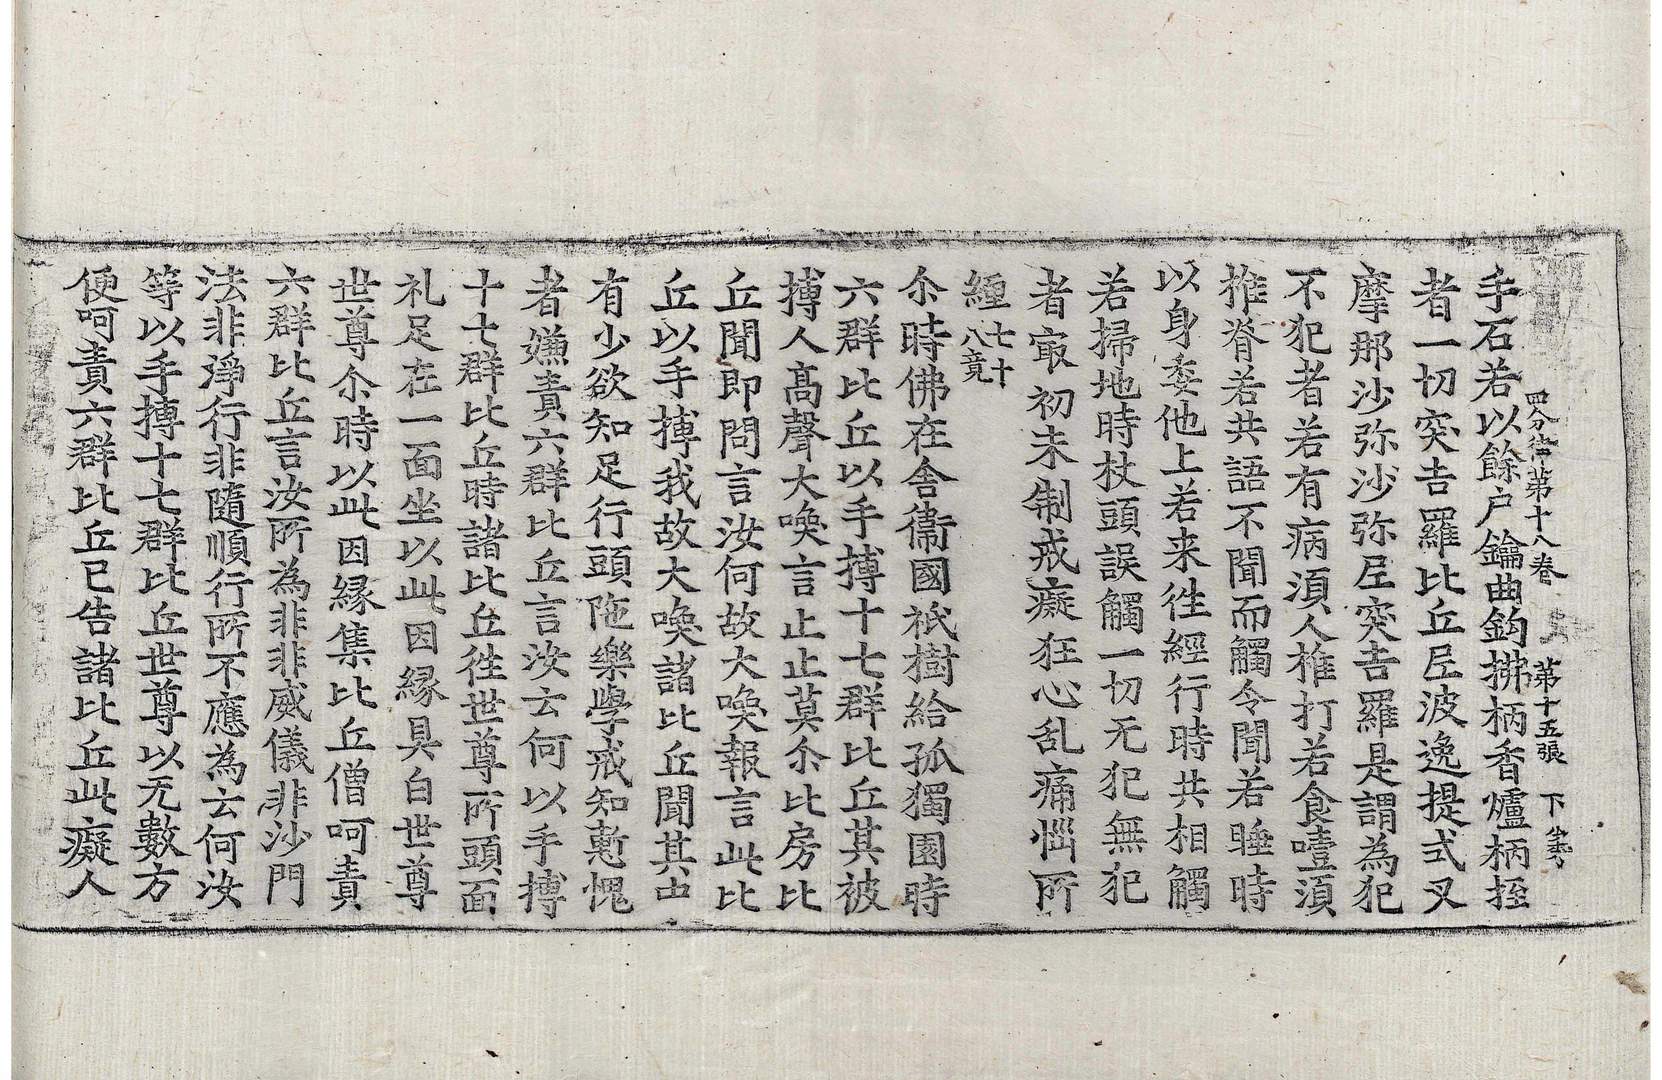 四分律第十八卷 第十五張 下
手石若以餘户鑰曲鉤拂柄香爐柄挃
者一切突吉羅比丘尼波逸提式叉
摩那沙弥沙弥尼突吉羅是謂為犯
不犯者若有病湏人椎打若食噎湏
椎脊若共語不聞而觸令聞若睡時
以身委他上若来徃經行時共相觸
若掃地時杖頭誤觸一切无犯無犯
者㝡初未制戒癡狂心乱痛惱所
纏七十八竟
尒時佛在舍衞國祇樹給孤獨園時
六群比丘以手搏十七群比丘其被
搏人髙聲大喚言止止莫尒比房比
丘聞即問言汝何故大喚報言此比
丘以手搏我故大喚諸比丘聞其中
有少欲知足行頭陁樂學戒知慙愧
者嫌責六群比丘言汝云何以手搏
十七群比丘時諸比丘徃世尊所頭面
礼足在一面坐以此因縁具白世尊
世尊尒時以此因縁集比丘僧呵責
六群比丘言汝所為非非威儀非沙門
法非淨行非隨順行所不應為云何汝
等以手搏十七群比丘世尊以无數方
便呵責六群比丘已告諸比丘此癡人